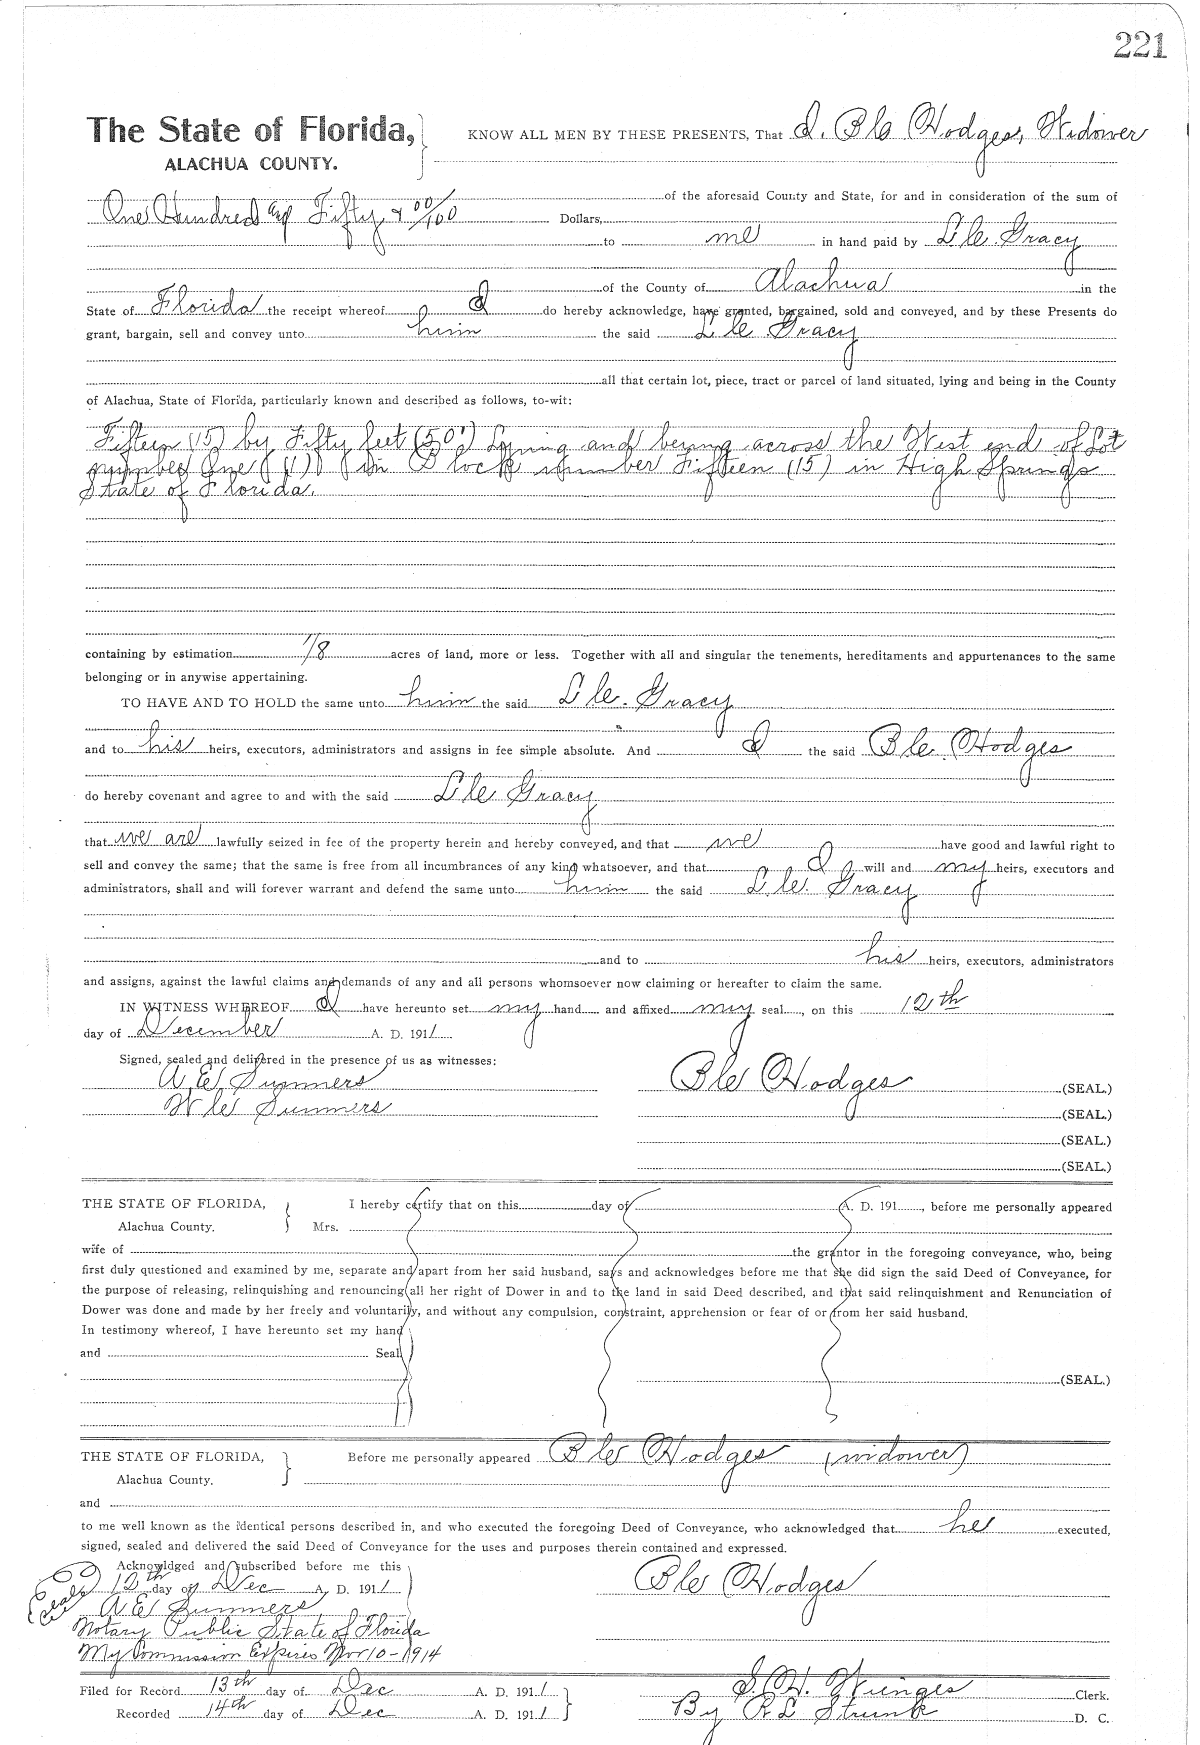 221
The State of Florida, KNOW ALL MEN BY THESE PRESENTS, That I, B C Hodges, Widower
ALACHUA COUNTY.
of the aforesaid County and State, for and in consideration of the sum of
One Hundred and Fifty & 00/100 Dollars,
to me in hand paid by L C. Gracy
of the County of Alachua in the
State of Florida the receipt whereof I do hereby acknowledge, have granted, bargained, sold and conveyed, and by these Presents do
grant, bargain, sell and convey unto him the said L C Gracy
all that certain lot, piece, tract or parcel of land situated, lying and being in the County
of Alachua, State of Florida, particularly known and described as follows, to-wit:
Fifteen (15) by Fifty feet (50') Lying and being across the West end of Lot
number One (1) in Block number Fifteen (15) in High Springs
State of Florida.
containing by estimation 1/8 acres of land, more or less. Together with all and singular the tenements, hereditaments and appurtenances to the same
belonging or in anywise appertaining.
TO HAVE AND TO HOLD the same unto him the said L C. Gracy
and to his heirs, executors, administrators and assigns in fee simple absolute. And I the said B C. Hodges
do hereby covenant and agree to and with the said L C Gracy
that we are lawfully seized in fee of the property herein and hereby conveyed, and that we have good and lawful right to
sell and convey the same; that the same is free from all incumbrances of any kind whatsoever, and that I will and my heirs, executors and
administrators, shall and will forever warrant and defend the same unto him the said L C. Gracy
and to his heirs, executors, administrators
and assigns, against the lawful claims and demands of any and all persons whomsoever now claiming or hereafter to claim the same.
IN WITNESS WHEREOF I have hereunto set my hand and affixed my seal, on this 12th
day of December A. D. 1911
Signed, sealed and delivered in the presence of us as witnesses:
A. E Summers B C Hodges (SEAL.)
W C Summers (SEAL.)
(SEAL.)
(SEAL.)
THE STATE OF FLORIDA, I hereby certify that on this day of A. D. 191, before me personally appeared
Alachua County. Mrs.
wife of the grantor in the foregoing conveyance, who, being
first duly questioned and examined by me, separate and apart from her said husband, says and acknowledges before me that she did sign the said Deed of Conveyance, for
the purpose of releasing, relinquishing and renouncing all her right of Dower in and to the land in said Deed described, and that said relinquishment and Renunciation of
Dower was done and made by her freely and voluntarily, and without any compulsion, constraint, apprehension or fear of or from her said husband.
In testimony whereof, I have hereunto set my hand
and Seal
(SEAL.)
THE STATE OF FLORIDA, Before me personally appeared B C Hodges (widower)
Alachua County.
and
to me well known as the identical persons described in, and who executed the foregoing Deed of Conveyance, who acknowledged that he executed,
signed, sealed and delivered the said Deed of Conveyance for the uses and purposes therein contained and expressed.
Acknowldged and subscribed before me this
12th day of Dec A. D. 1911 B C Hodges
Seal
A E Summers
Notary Public State of Florida
My Commission Expires Nov 10-1914
Filed for Record 13th day of Dec A. D. 1911 S. H. Wienges Clerk.
Recorded 14th day of Dec A. D. 1911 By R L Strunk D. C.